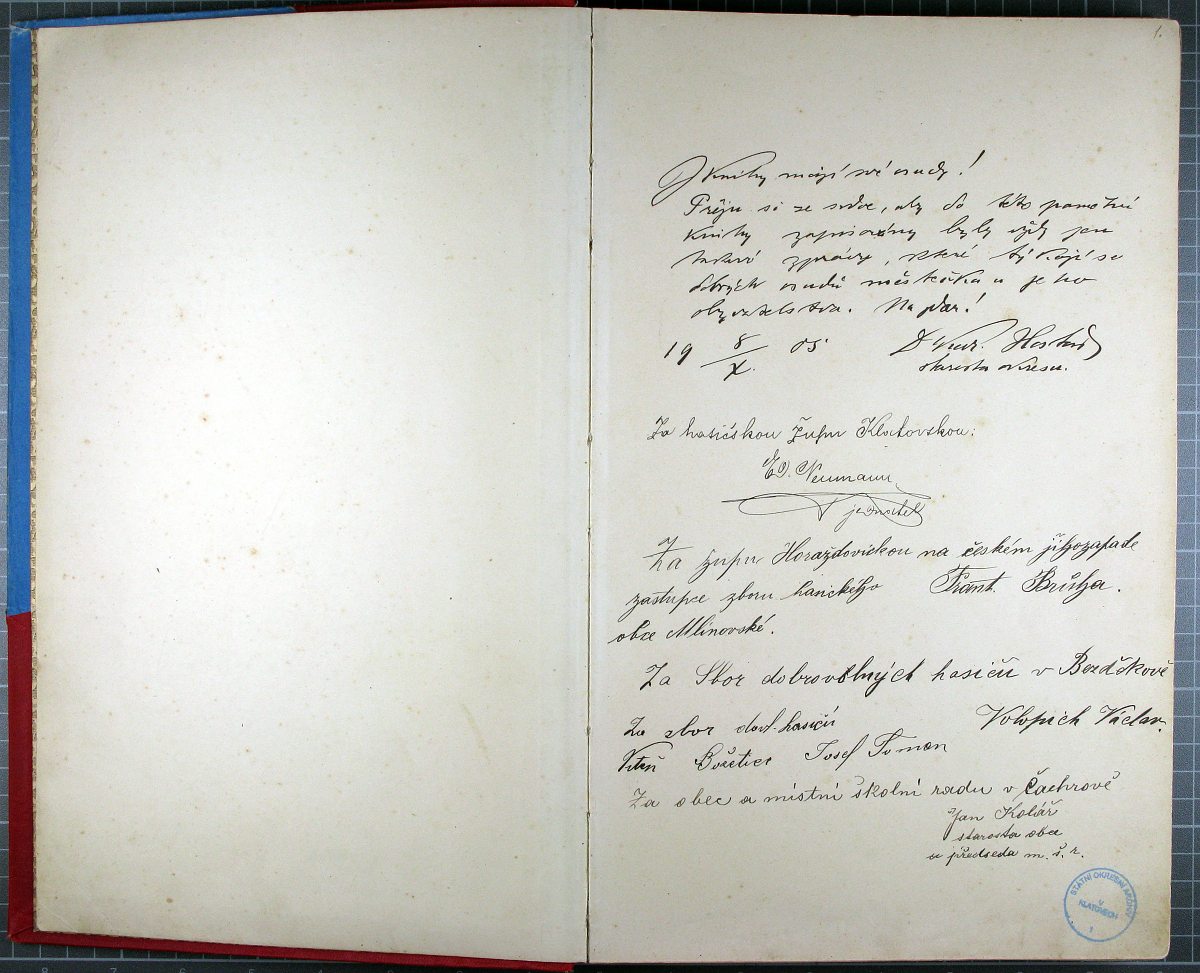 1.
I knihy mají své osudy!
Přeju si ze srdce, aby do této pamětní
knihy zapisovány byly vždy jen
zprávy, které týkají se
dobrých osudů městečka a jeho
obyvatelstva. Na zdar!
19 8/X. 05 Dr
starosta okresu.
Za hasičskou župu Klatovskou:
Ed. Neumann
jednatel
Za župu Horažďovickou na českém jihozápadě
zástupce sboru hasického Frant. Brůha.
obce Mlínovské.
Za Sbor dobrovolných hasičů v Bezděkově
Volopich Václav.
Za sbor dovl. hasičů
Božetice Josef Toman
Za obec a místní školní radu v Čachrově
Jan Kolář
starosta obce
a předseda m. š. r.
STÁTNÍ OKRESNÍ ARCHIV
V
KLATOVECH
1